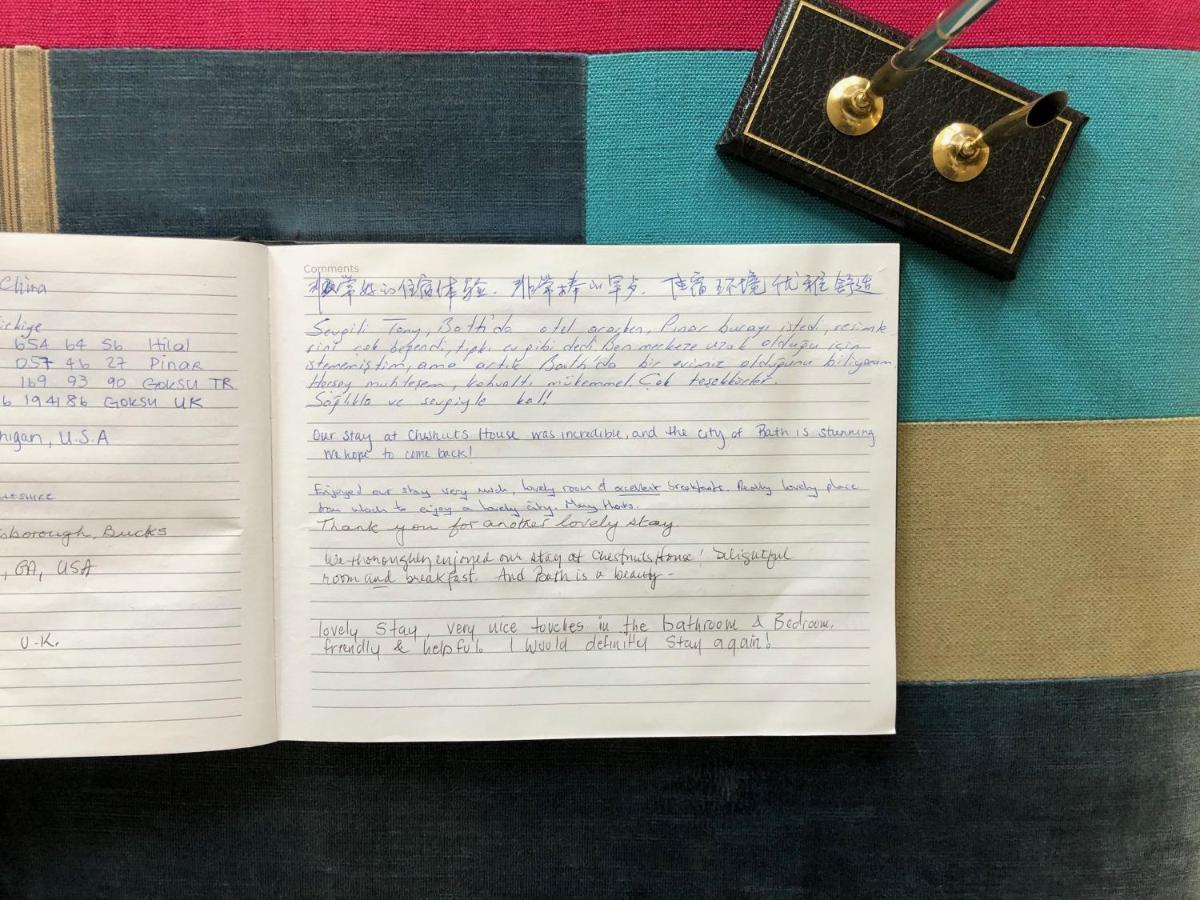 China
654 64 56 Hilal
057 46 27 Pinar
169 93 90 GOKSU TR
6 194186 GOKSU UK
higan, U.S.A
sborough, Bucks
, GA, USA
U.K.
Comments
非常好的住宿体验. 非常棒的早餐. 住宿环境优雅舒适
Sevgili Tony, Bath'da otel ararken, Pınar burayı istedi, resimle
rini çok beğendi, tıpkı ev gibi dedi. Ben merkeze uzak olduğu için
istememiştim, ama artık Bath'da bir evimiz olduğunu biliyorum
Herşey muhteşem, kahvaltı mükemmel. Çok teşekkürler.
Sağlıkla ve sevgiyle kal!
Our stay at Chesnuts House was incredible, and the city of Bath is stunning
We hope to come back!
Enjoyed our stay very much, lovely room & excellent breakfasts. Really lovely place
from which to enjoy a lovely city. Many thanks.
Thank you for another lovely stay.
We thoroughly enjoyed our stay at Chestnuts House! Delightful
room and breakfast. And Bath is a beauty -
lovely stay, very nice touches in the bathroom & Bedroom.
friendly & helpful. I would definitly stay again!